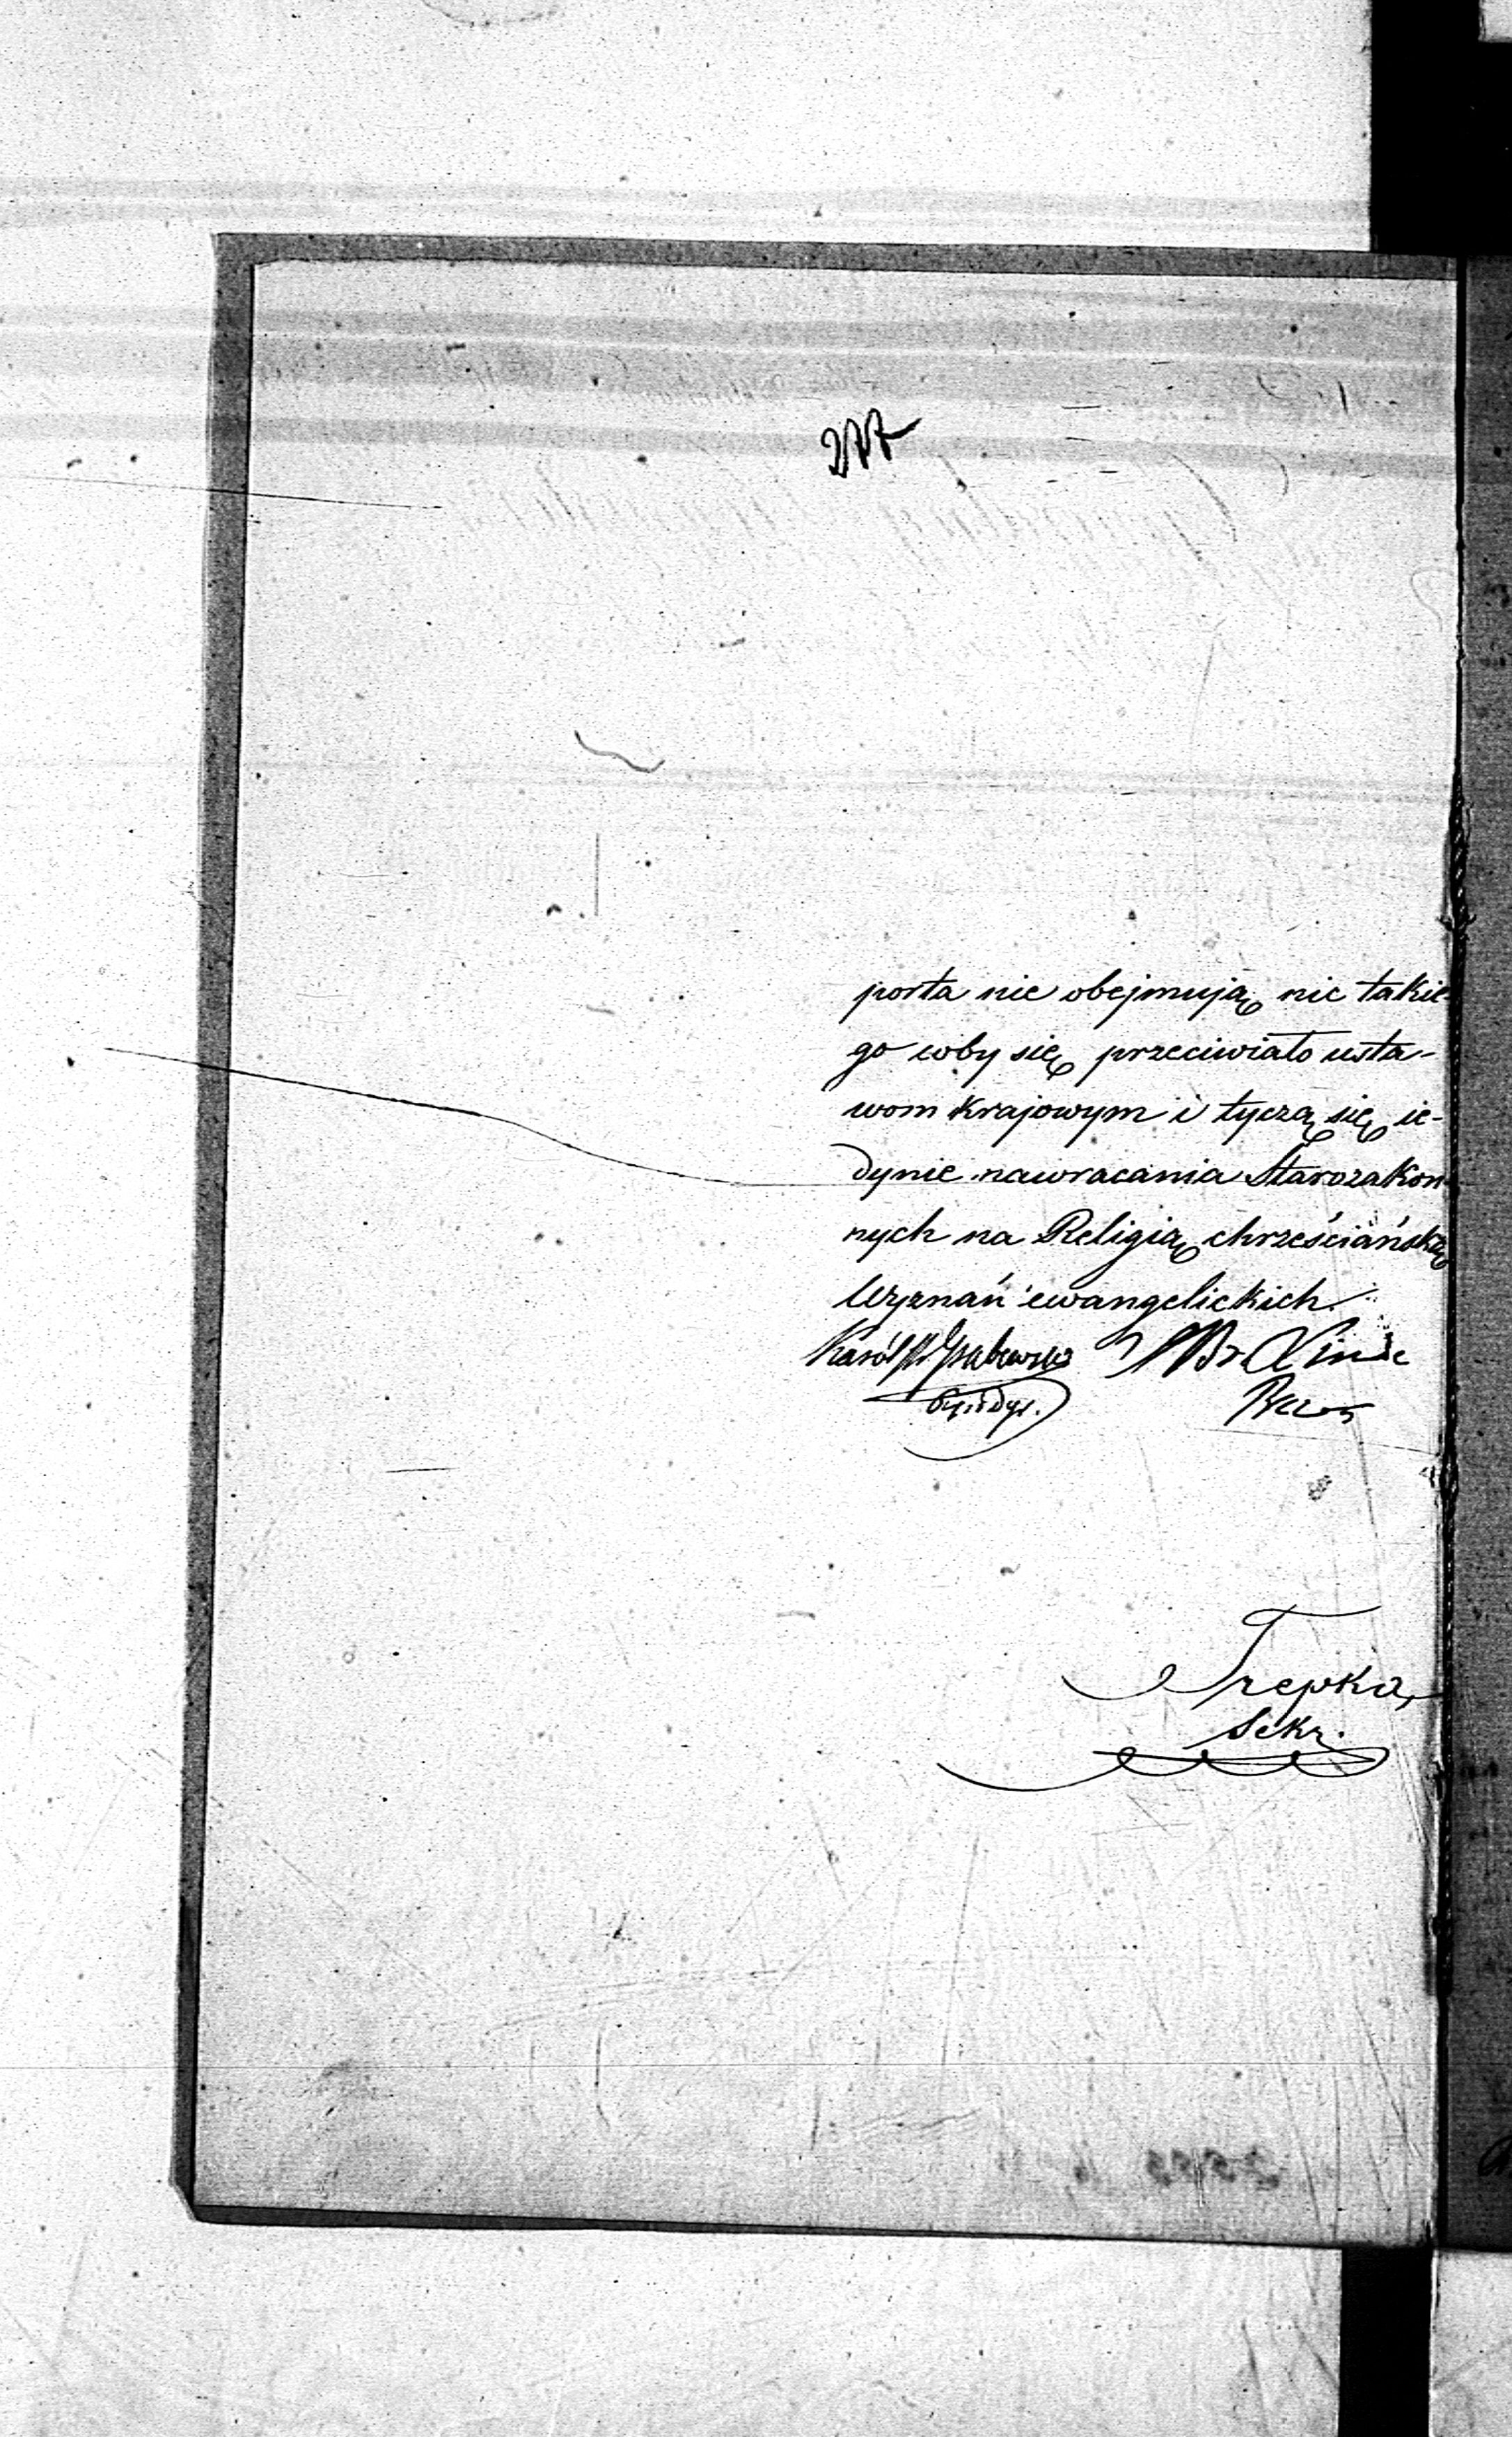 277
porta nie obejmują nic takie-
go coby się przeciwiało usta-
wom krajowym i tyczą się ie-
dynie nawracania Starozakon-
nych na Religią chrześciańską
Wyznań ewangelickich.
Karól SBr Linde
Trepka
Sekr.